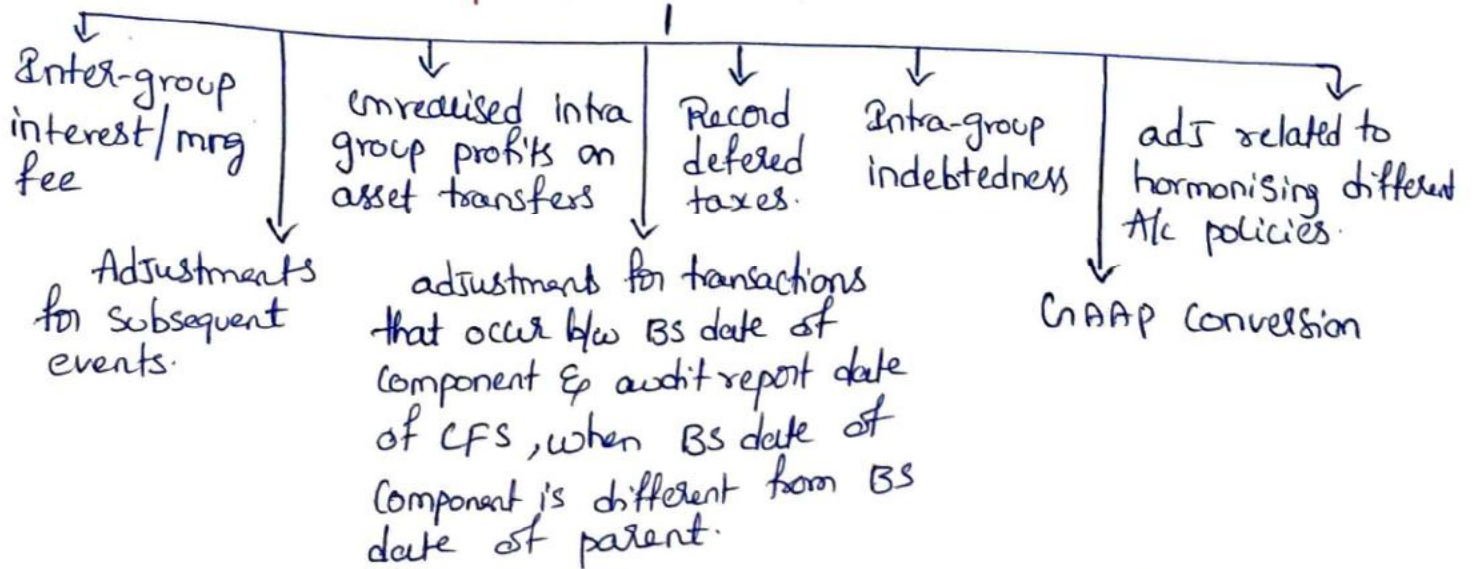 Inter-group
interest/mrg
fee
Adjustments
for subsequent
events.
unrealised intra
group profits on
asset transfers
adjustment for transactions
that occur b/w BS date of
Component & audit report date
of CFS, when BS date of
Component is different from BS
date of parent.
Record
defered
taxes.
Intra-group
indebtedness
GAAP Conversion
adj related to
hormonising different
A/c policies.